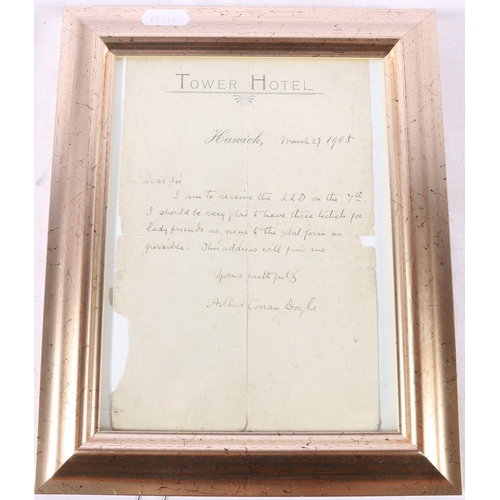 TOWER HOTEL.
Hawick, March 27 1905
Dear Sir
I am to receive the LLD on the 7th
I should be very glad to have three tickets for
lady friends as near to the platform as
possible. This address will find me
Yours faithfully
Arthur Conan Doyle.